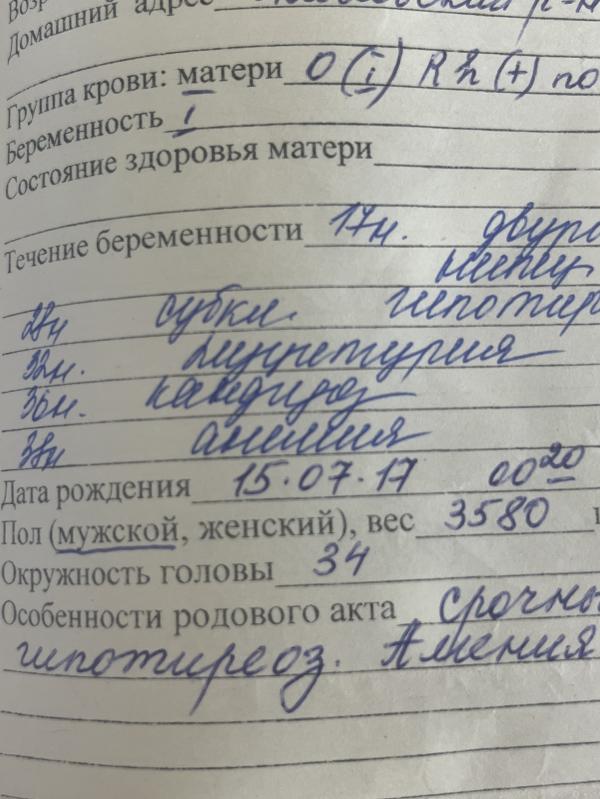 Домашний адрес
Группа крови: матери O (I) Rh (+) по
Беременность I
Состояние здоровья матери
Течение беременности 17н.
28н субкл. гипотир
32н.
36н. кандидоз
38н анемия
Дата рождения 15.07.17 00 20
Пол (мужской, женский), вес 3580
Окружность головы 34
Особенности родового акта срочны
гипотиреоз. Анемия